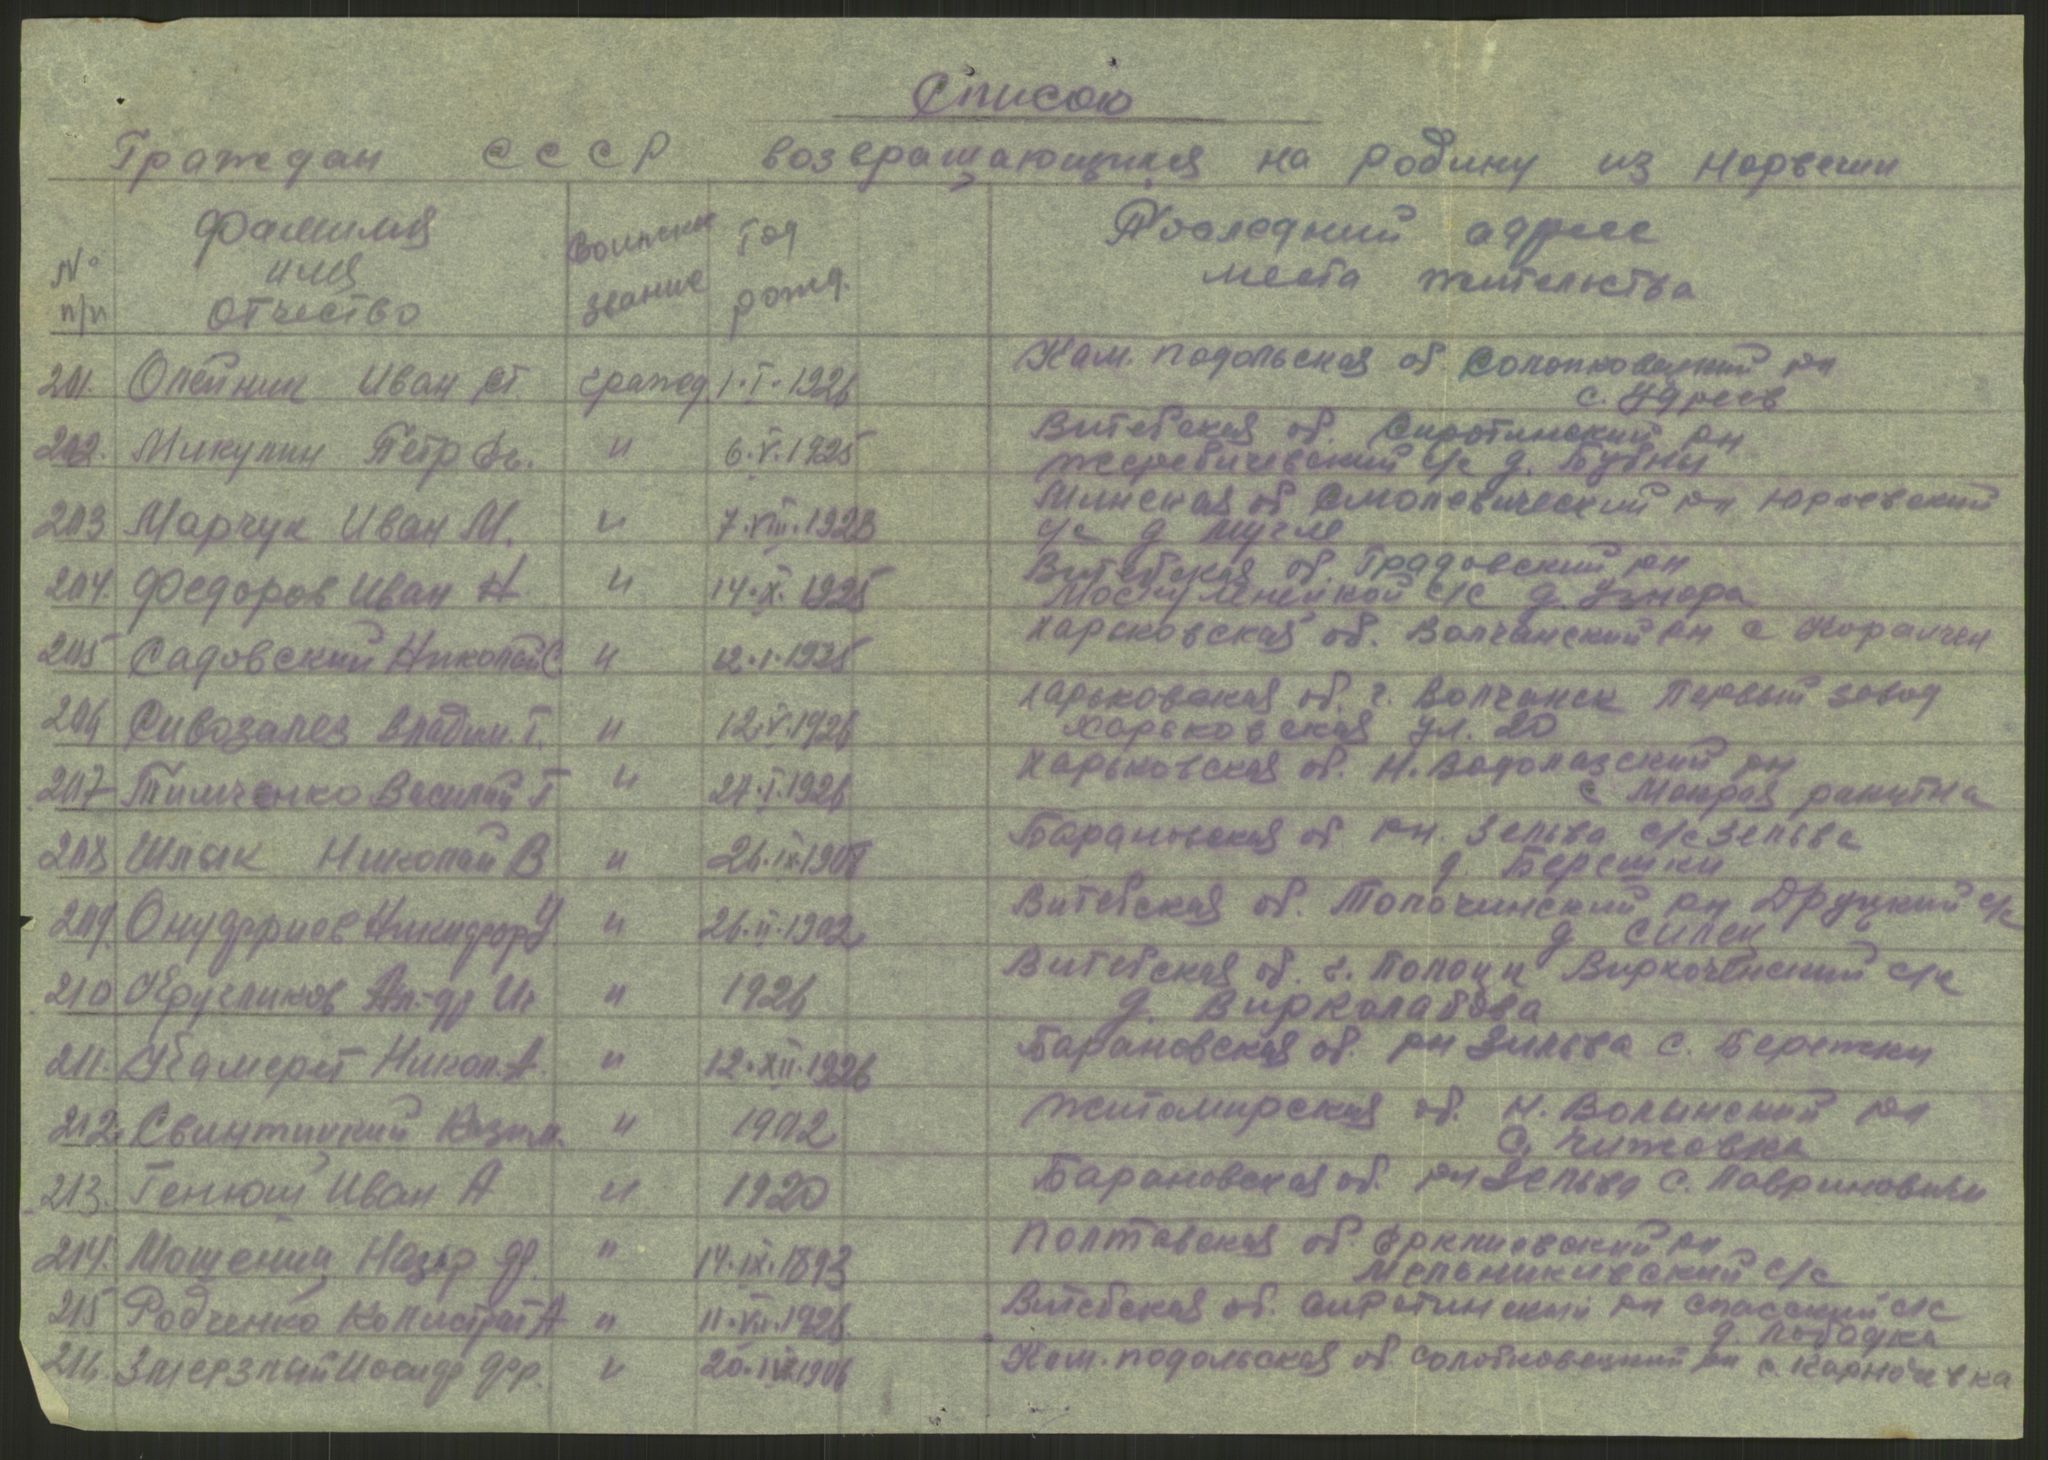 Список
Граждан СССР возвращающихся на родину из Норвегии
№ п/п
Фамилия имя отчество
Воинское звание
Год рожд.
Последний адрес места жительства
201. Олейник Иван Ст. гражд. 1.I.1926 Кам. подольская об. Солопковецкий рн
с. Удреев
202. Микулин Петр 〃 6.V.1925 Витебская об. Сиротинский рн
жеребичевский с/с д. Бубны
203 Марчук Иван М. 〃 7.VIII.1923 Минская об Смолевический рн Юрьевский
с/с д
204. Федоров Иван Н 〃 14.X.1925 Витебская об. рн
с/с д.
205 Садовский Николай С. 〃 12.I.1925 Харьковская об. Волчанский рн с
206 Сивозалез Владим. Г. 〃 12.V.1926 Харьковская об. г. Волчанск Первый завод
Харьковская ул. 20
207 Тимченко Василий Г 〃 27.I.1926 Харьковская об. Н. Водолазский рн
с Мокрая ракитна
208 Шлык Николай В 〃 26.IX.1907 Барановская об рн. Зельва с/с Зельва
д. Берешки
209. Онуфриев Никифор 〃 26.II.1902 Витебская об. Толочинский рн Друцкий с/с
д
210 Кругликов Ал-др Иг 〃 1926 Витебская об. г. Полоцк с/с
д.
211. Камерет Никол. А. 〃 12.XII.1926 Барановская об. рн Зельва с. Бережки
212. Свинтицкий Казим. 〃 1902 Житомирская об. Н. Волынский рн
с. Чижовка
213. Генюш Иван А 〃 1920 Барановская об. рн Зельва с. Лавриновичи
214. Назар Ф. 〃 14.IX.1893 Полтавская об. рн
Мельникивский с/с
215 Родченко Калистрат А 〃 1926 Витебская об. Сиротинский рн Спасский с/с
д. Лобадка
216. Змерзлый Иосиф Фр. 〃 1906 Кам. подольская об Солобковецкий рн с. Карначевка